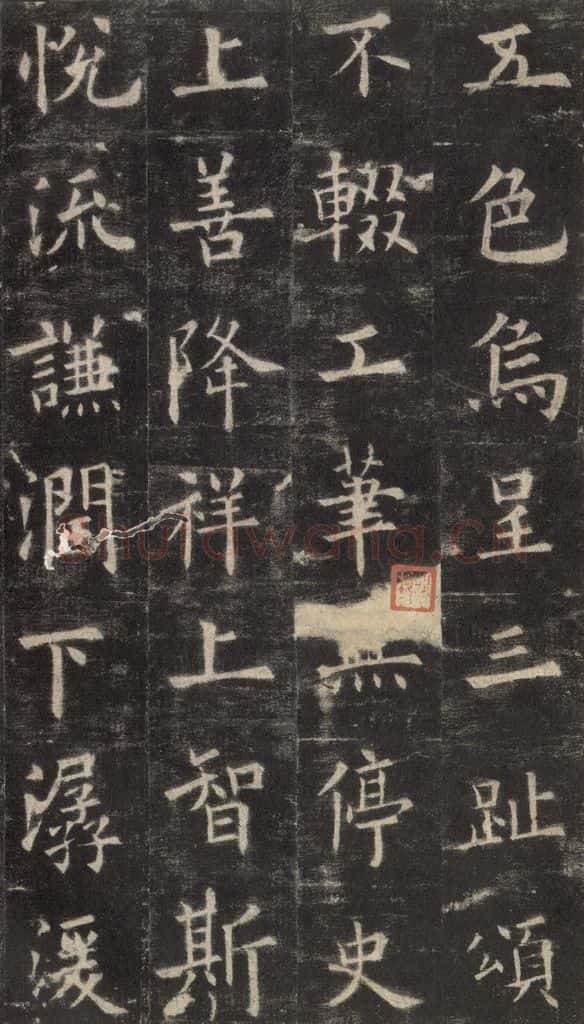 五色烏呈三趾頌
不輟工筆無停史
上善降祥上智斯
悅流謙潤下潺湲
shufawang.cn